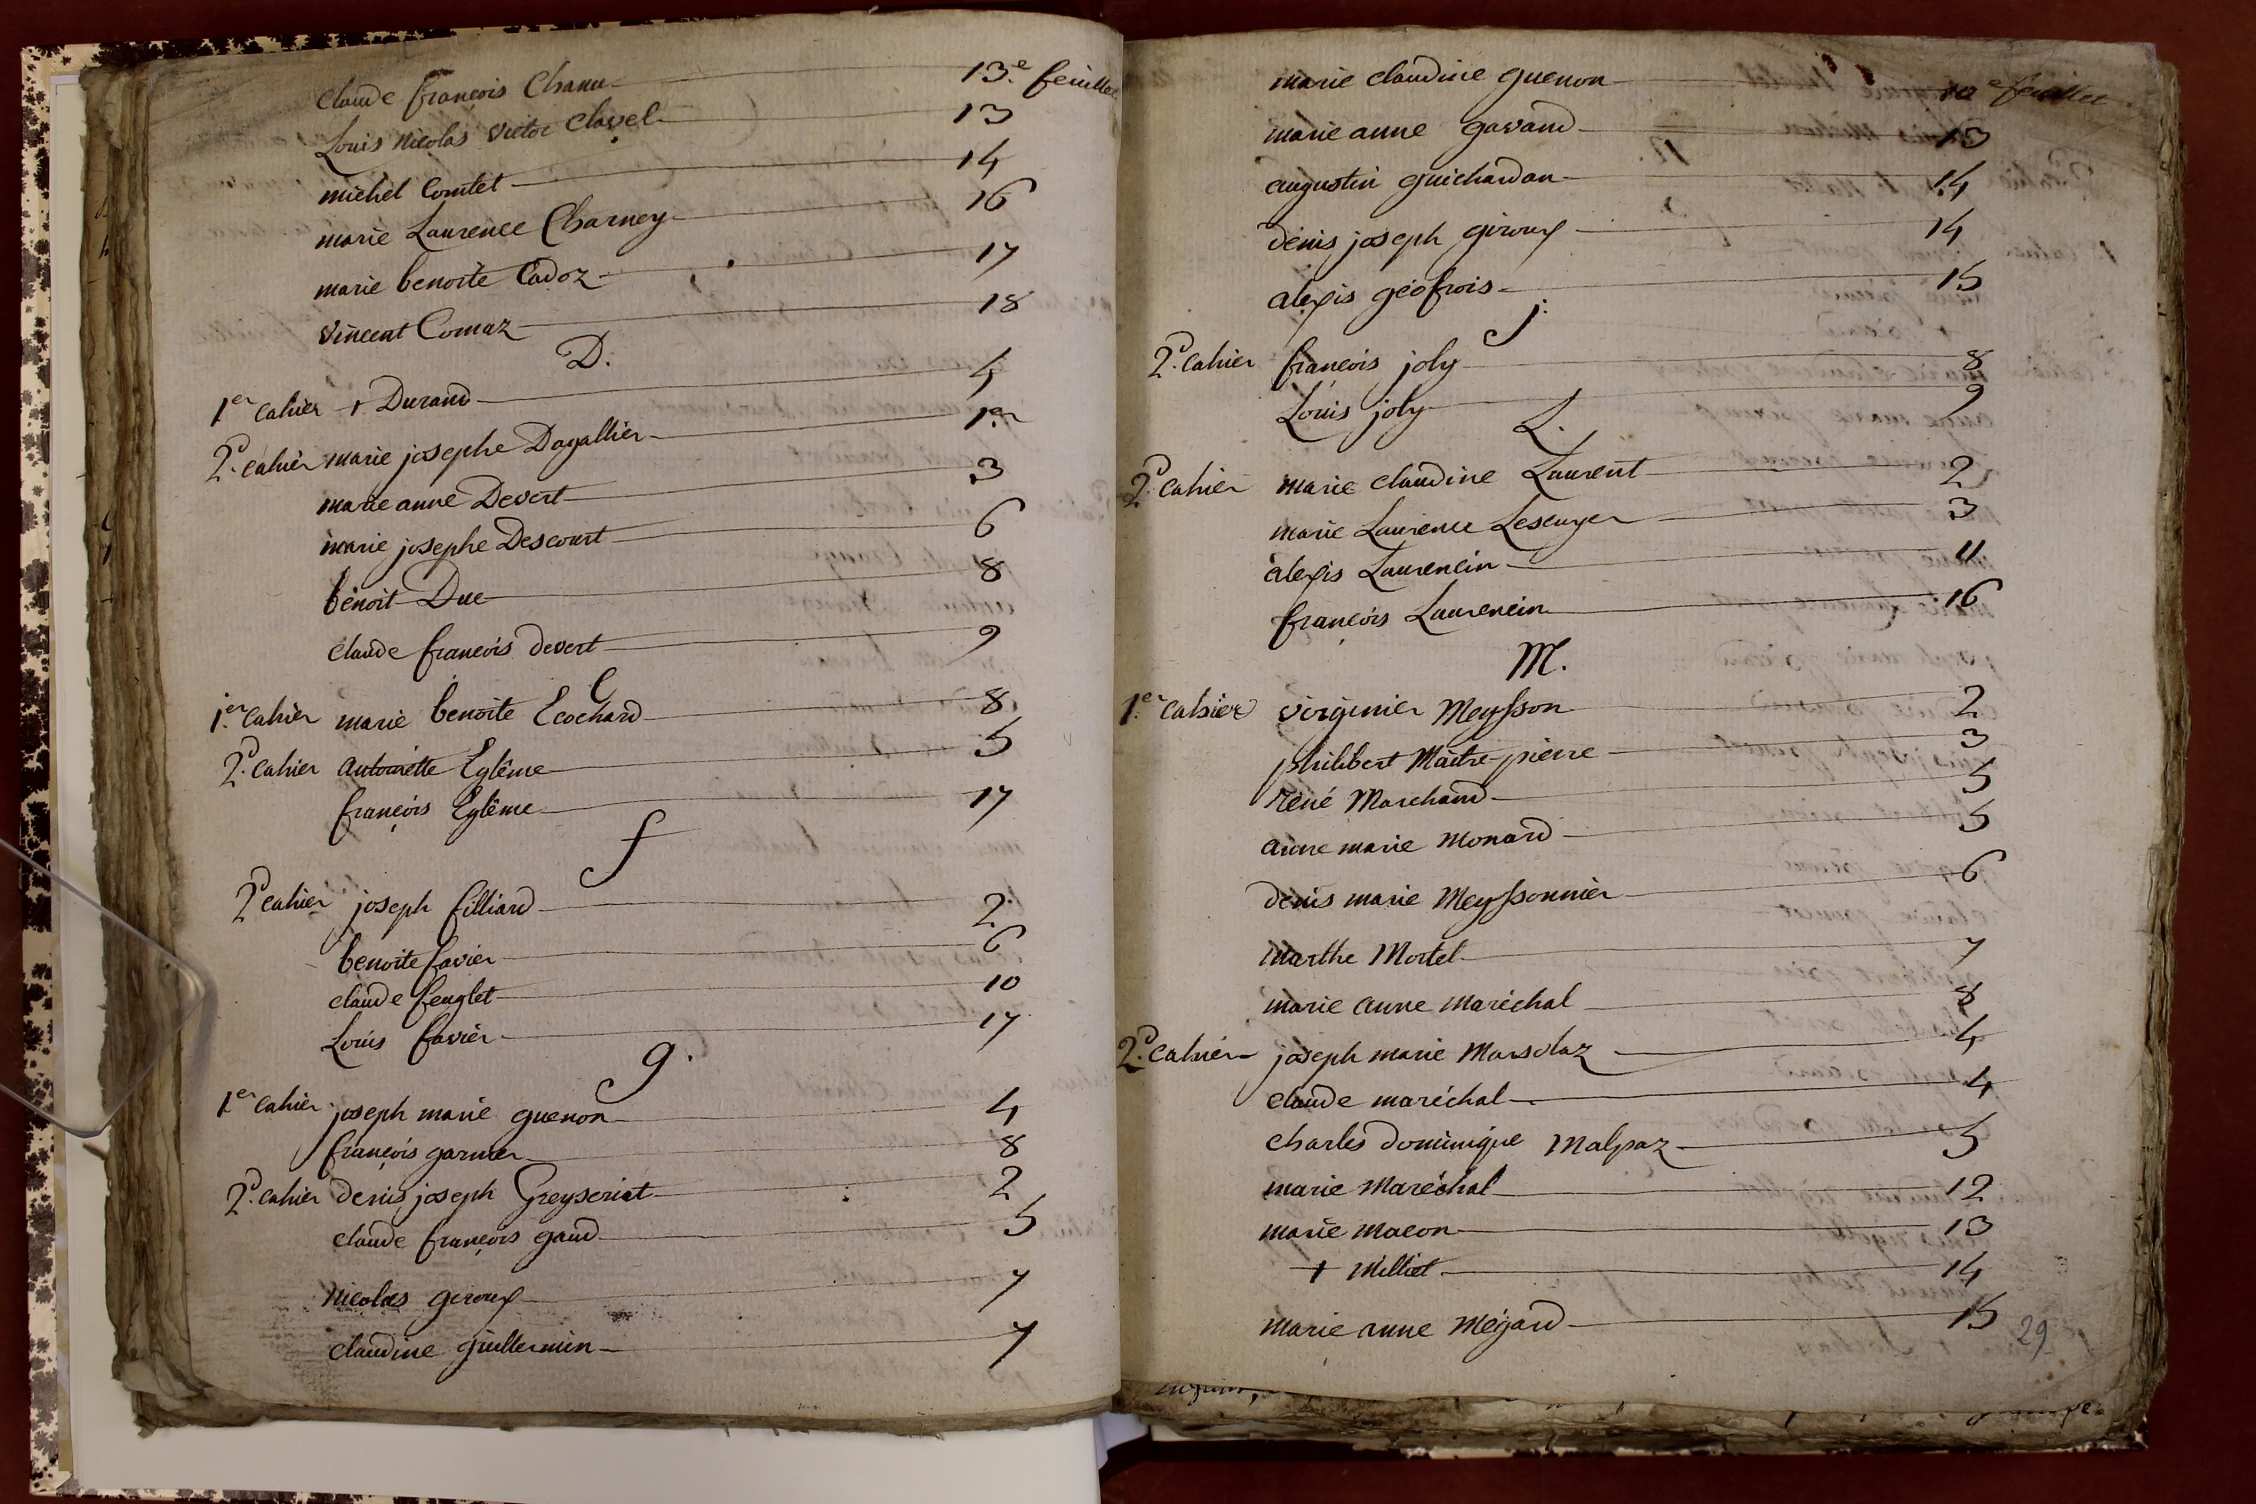 claude françois Chanu 13.e feuillet
Louis Nicolas Victor Clavel 13
michel Comtet 14
marie Laurence Charney 16
marie benoite Cadoz 17
Vincent Comaz 18
D.
1er cahier + Durand 4
2d. cahier marie josephe Dagallier 1.er
marie anne Devert 3
marie josephe Descourt 6
benoit Duc 8
claude françois devert 9
E
1.er cahier marie benoite Ecochard 8
2d. cahier Antoinette Eglême 5
françois Eglême 17
f
2d cahier joseph filliard 2.
benoite favier 6
claude feuglet 10
Louis favier 17
g.
1er cahier joseph marie guenon 4
françois garnier 8
2d. cahier denis joseph Greyseriat 2
claude françois gaud 5
nicolas giroux 7
claudine guillermin 7
marie claudine guenon feuillet
marie anne gavand 13
augustin guichardan 14
denis joseph giroux 14
alexis géofrois 15
j.
2d. cahier françois joly 8
Louis joly 9
L.
2d. cahier marie claudine Laurent 2
marie Laurence Lescuyer 3
alexis Laurencin 11
françois Laurencin 16
M.
1.er cahier virginier Meysson 2
philibert Maitre-pierre 3
réné Marchand 5
anne marie Monard 5
denis marie Meyssonnier 6
marthe Mortel 7
marie anne maréchal 8
2d. cahier joseph marie Marsolaz 4
claude maréchal 4
charles dominique Malpaz 5
marie Maréchal 12
marie macon 13
+ Milliet 14
marie anne Mégard 15
29